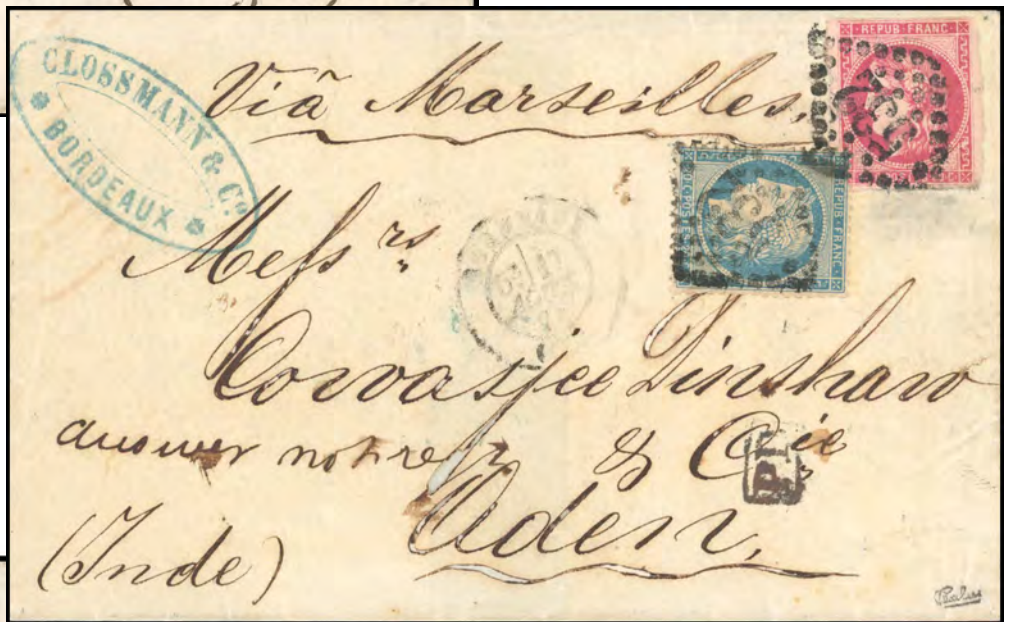 CLOSSMANN & Cº
BORDEAUX
Viâ Marseilles,
REPUB·FRANC·
REPUB·FRANC·
Messrs
Cowasjee Dinshaw
answer not re
& Cie
PD
Aden,
(Inde)